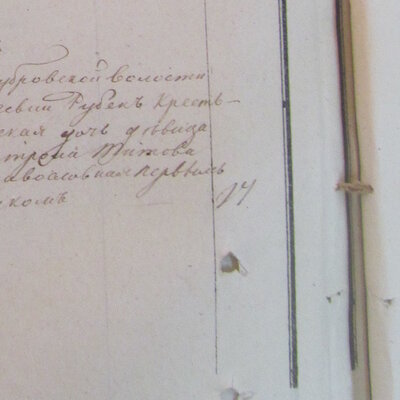 убровской волости
евни Рубекъ кресть-
ская дочь девица
трова Титова
авославная первымъ
комъ
24